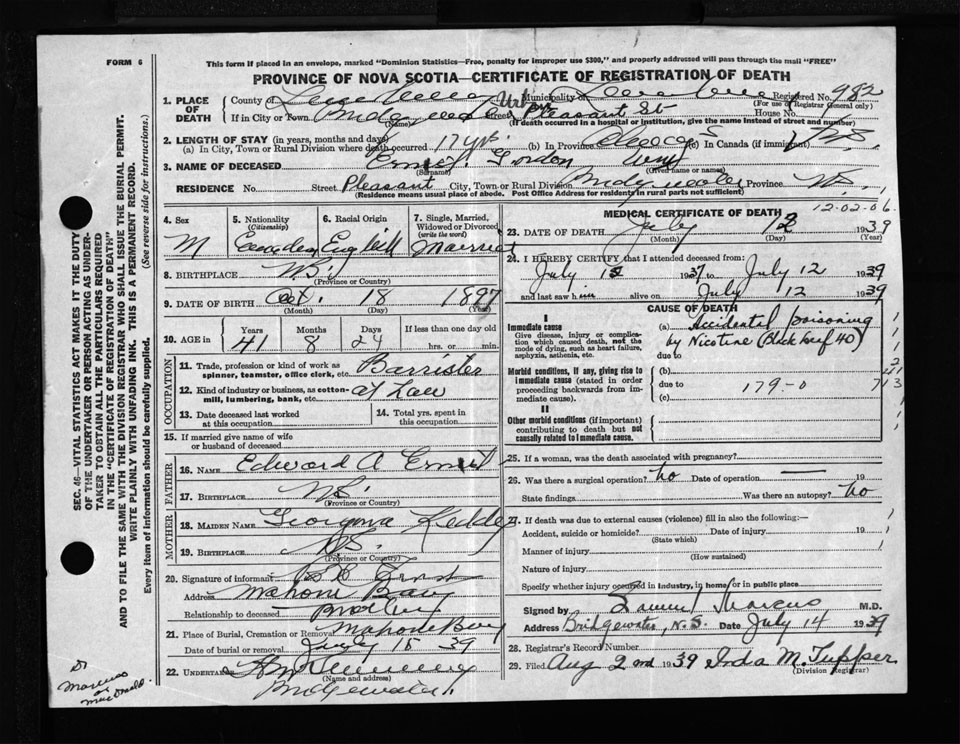 FORM 6
This form if placed in an envelope, marked "Dominion Statistics—Free, penalty for improper use $300," and properly addressed will pass through the mail "FREE"
PROVINCE OF NOVA SCOTIA—CERTIFICATE OF REGISTRATION OF DEATH
1. PLACE OF DEATH County of Municipality of Registered No. 982
(For use of Registrar General only)
If in City or Town Bridgewater (Name) Street Pleasant St House No.
(If death occurred in a hospital or institution, give the name instead of street and number)
2. LENGTH OF STAY (in years, months and days)
(a) In City, Town or Rural Division where death occurred 17 yrs. (b) In Province (c) In Canada (if immigrant)
3. NAME OF DECEASED Ernst, Gordon
(Surname) (Given name or names)
RESIDENCE No. Street Pleasant City, Town or Rural Division Bridgewater Province N.S.
(Residence means usual place of abode. Post Office Address for residents in rural parts not sufficient)
4. Sex M
5. Nationality (Citizenship) Canadian
6. Racial Origin English
7. Single, Married, Widowed or Divorced (write the word) Married
8. BIRTHPLACE N.S.
(Province or Country)
9. DATE OF BIRTH Oct. 18 1897
(Month) (Day) (Year)
10. AGE in Years Months Days If less than one day old
41 8 24 hrs. or min.
OCCUPATION
11. Trade, profession or kind of work as spinner, teamster, office clerk, etc. Barrister
12. Kind of industry or business, as cotton-mill, lumbering, bank, etc. at Law
13. Date deceased last worked at this occupation
14. Total yrs. spent in this occupation
15. If married give name of wife or husband of deceased
FATHER
16. NAME Edward A Ernst
17. BIRTHPLACE N.S.
(Province or Country)
MOTHER
18. MAIDEN NAME Georgina Keddy
19. BIRTHPLACE N.S.
(Province or Country)
20. Signature of informant Ernst
Address Mahone Bay
Relationship to deceased Brother
21. Place of Burial, Cremation or Removal Mahone Bay
Date of burial or removal July 15 1939
22. UNDERTAKER
(Name and address)
Bridgewater
MEDICAL CERTIFICATE OF DEATH
12-02-06
23. DATE OF DEATH July 12 1939
(Month) (Day) (Year)
24. I HEREBY CERTIFY that I attended deceased from:
July 12 1939 to July 12 1939
and last saw him alive on July 12 1939
CAUSE OF DEATH
I
Immediate cause
Give disease, injury or complication which caused death, not the mode of dying, such as heart failure, asphyxia, asthenia, etc.
(a) Accidental poisoning by Nicotine (Black leaf 40)
due to
Morbid conditions, if any, giving rise to immediate cause (stated in order proceeding backwards from immediate cause)
(b)
due to 179-0 713
(c)
II
Other morbid conditions (if important) contributing to death but not causally related to immediate cause.
25. If a woman, was the death associated with pregnancy?
26. Was there a surgical operation? no Date of operation —
State findings Was there an autopsy? no
27. If death was due to external causes (violence) fill in also the following:—
Accident, suicide or homicide? Date of injury 19
(State which)
Manner of injury
(How sustained)
Nature of injury
Specify whether injury occurred in industry, in home, or in public place
Signed by Samuel Marcus M.D.
Address Bridgewater, N.S. Date July 14 1939
28. Registrar's Record Number
29. Filed Aug 2nd 1939 Inda M. Tupper
(Division Registrar)
SEC. 46—VITAL STATISTICS ACT MAKES IT THE DUTY
OF THE UNDERTAKER OR PERSON ACTING AS UNDERTAKER TO OBTAIN ALL THE PARTICULARS REQUIRED
IN THE "CERTIFICATE OF REGISTRATION OF DEATH"
AND TO FILE THE SAME WITH THE DIVISION REGISTRAR WHO SHALL ISSUE THE BURIAL PERMIT.
WRITE PLAINLY WITH UNFADING INK. THIS IS A PERMANENT RECORD.
Every item of information should be carefully supplied. (See reverse side for instructions.)
Dr
Marcus
or
MacDonald.